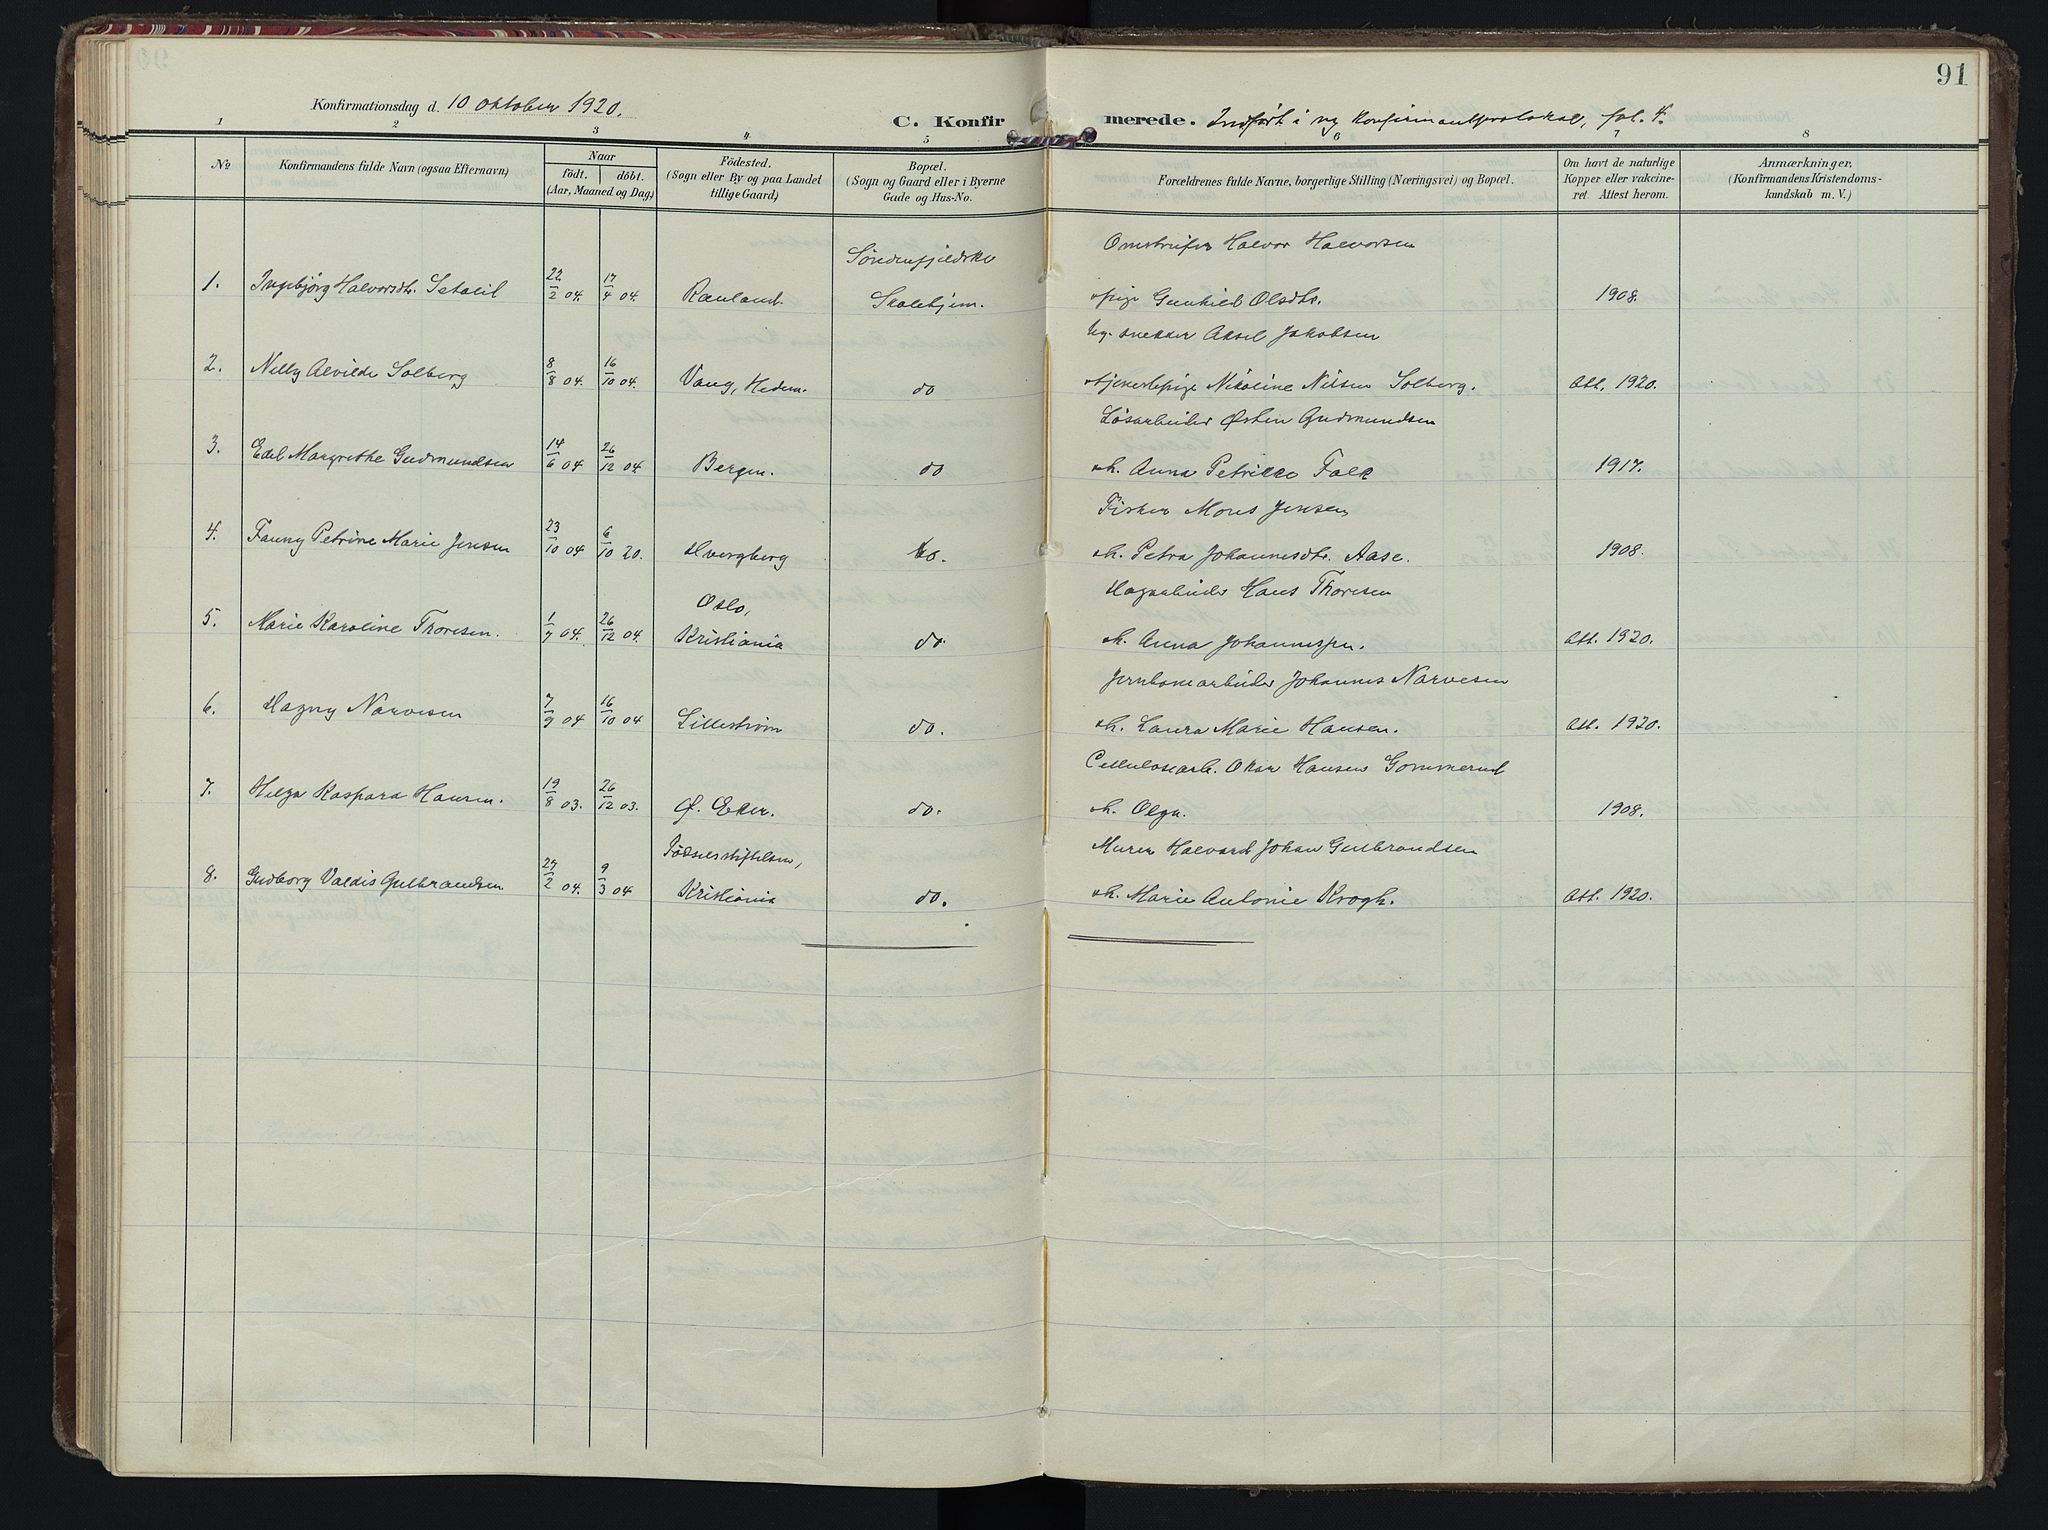 91
Konfirmationsdag d. 10 oktober 1920.
C. Konfirmerede. Indført i ny Konfirmantprotokol, fol. 4.
1 2 3 4 5 6 7 8
No
Konfirmandens fulde Navn (ogsaa Efternavn)
Naar
födt. döbt.
(Aar, Maaned og Dag)
Födested.
(Sogn eller By og paa Landet
tillige Gaard)
Bopæl.
(Sogn og Gaard eller i Byerne
Gade og Hus-No.
Forældrenes fulde Navne, borgerlige Stilling (Næringsvei) og Bopæl.
Om havt de naturlige
Kopper eller vakcine-
ret. Attest herom.
Anmærkninger,
(Konfirmandens Kristendoms-
kundskab m. V.)
Søndenfjeldske Halvor Halvorsen
1. Ingebjørg Halvorsdtr. 22/2 04. 17/4 04. Rauland. Skolehjem. pige Gunhild Olsdtr. 1908.
ug. snekker Aksel Jakobsen
2. Nelly Alvilde Solberg 8/8 04. 16/10 04. Vang, Hedem. do tjenestepige Nikoline Nilsen Solberg. Att. 1920.
Løsarbeider Østen Gudmundsen
3. Edel Margrethe Gudmundsen 14/6 04 26/12 04. Bergen. do o h. Anna Petrikke Falk 1917.
Fisker Mons Jensen
4. Fanny Petrine Marie Jensen 23/10 04 6/10 20. Hvergberg do. o h. Petra Johannesdtr. Aase. 1908.
Oslo, Havnarbeider Hans Thoresen
5. Marie Karoline Thoresen. 1/7 04. 26/12 04. Kristiania do. o h. Anna Johannesen. Att. 1920.
Jernbanearbeider Johannes Narvesen
6. Hagny Narvesen 7/9 04 16/10 04 Lillestrøm do. o h. Laura Marie Hansen. Att. 1920.
Cellulosearb. Oskar Hansen Gommerud
7. Helga Kaspara Hansen. 19/8 03. 26/12 03. Ø. Eker. do. o h. Olga. 1908.
Fødselsstiftelsen, Murer Halvard Johan Gulbrandsen
8. Gudborg Valdis Gulbrandsen 27/2 04. 9/3 04 Kristiania do. o h. Marie Antonie Krogh. Att. 1920.